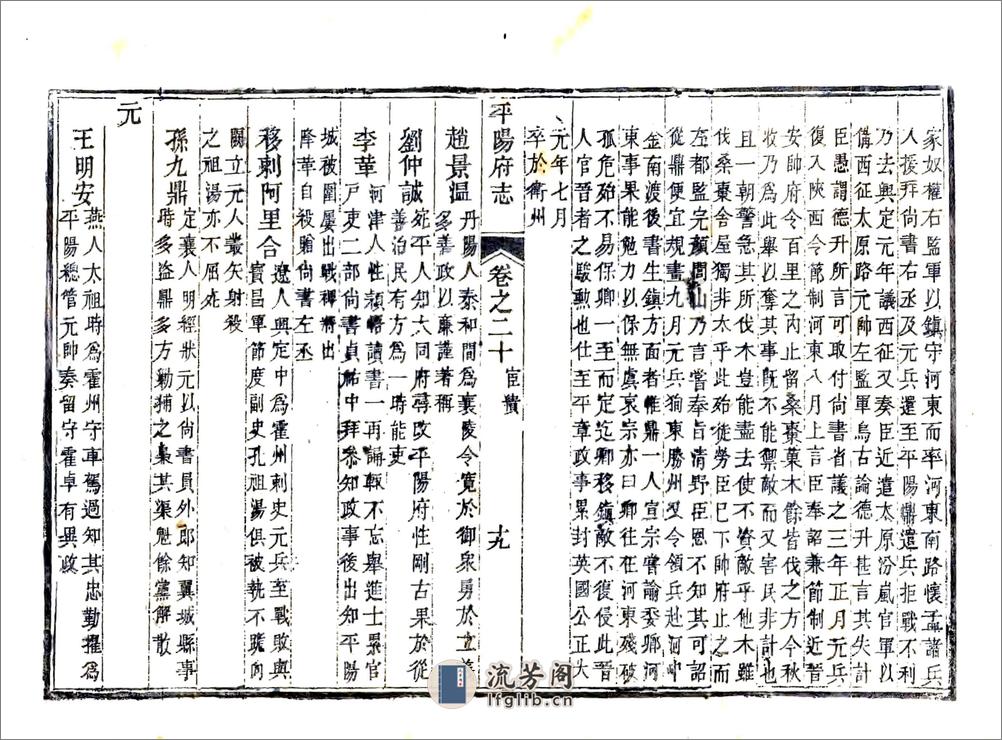 家奴權右監軍以鎮守河東而率河東南路懷孟諸兵
人援拜尚書右丞及元兵還至平陽鼎遣兵拒戰不利
乃去興定元年議西征又奏臣近遣太原汾嵐官軍以
備西征太原路元帥左監軍烏古論德升甚言其失計
臣愚謂德升所言可取付尚書省議之三年正月元兵
復入陝西令節制河東八月上言臣奉詔兼節制近晉
安帥府令百里之內止留桑棗菓木餘皆伐之方今秋
收乃爲此舉以奪其事既不能禦敵而又害民非計也
且一朝警急其所伐木豈能盡去使不資敵乎他木雖
伐桑棗舍屋獨非木乎此殆徒勞臣已下帥府止之而
左都監完顏閭山乃言嘗奉旨清野臣恩不知其可詔
從鼎便宜規畫九月元兵狥東勝州又令領兵赴河中
金南渡後書生鎮方面者惟鼎一人宣宗嘗諭委卿河
東事果能勉力以保無虞哀宗亦曰卿往在河東殘破
孤危殆不易保卿一至而定迄卿移鎮敵不復侵此晉
人官晉者之駿勲也仕至平章政事累封英國公正大
元年七月
卒於衛州
平陽府志 卷之二十 宦蹟 十九
趙景溫 丹陽人泰和間爲襄陵令寬於御衆勇於立義
多善政以廉謹著稱
劉仲誠 死平人知大同府尋改平陽府性剛古果於從
善治民有方爲一時能吏
李革 河津人性頴悟讀書一再誦輒不忘舉進士累官
戸吏二部尚書貞祐中拜叅知政事後出知平陽
城被圍屢出戰裨將出
降革自殺贈尚書左丞
移剌阿里合 遼人興定中爲霍州刺史元兵至戰敗與
賓邑軍節度副史孔祖湯俱被執不跪向
闕立元人叢矢射殺
之祖湯亦不屈死
孫九鼎 定襄人明經狀元以尚書員外郎知翼城縣事
時多盜鼎多方勦捕之梟其渠魁餘黨解散
元
王明安 燕人太祖時爲霍州守車駕過知其忠勤擢爲
平陽總管元帥奏留守霍卓有異政
流芳阁
lfglib.cn